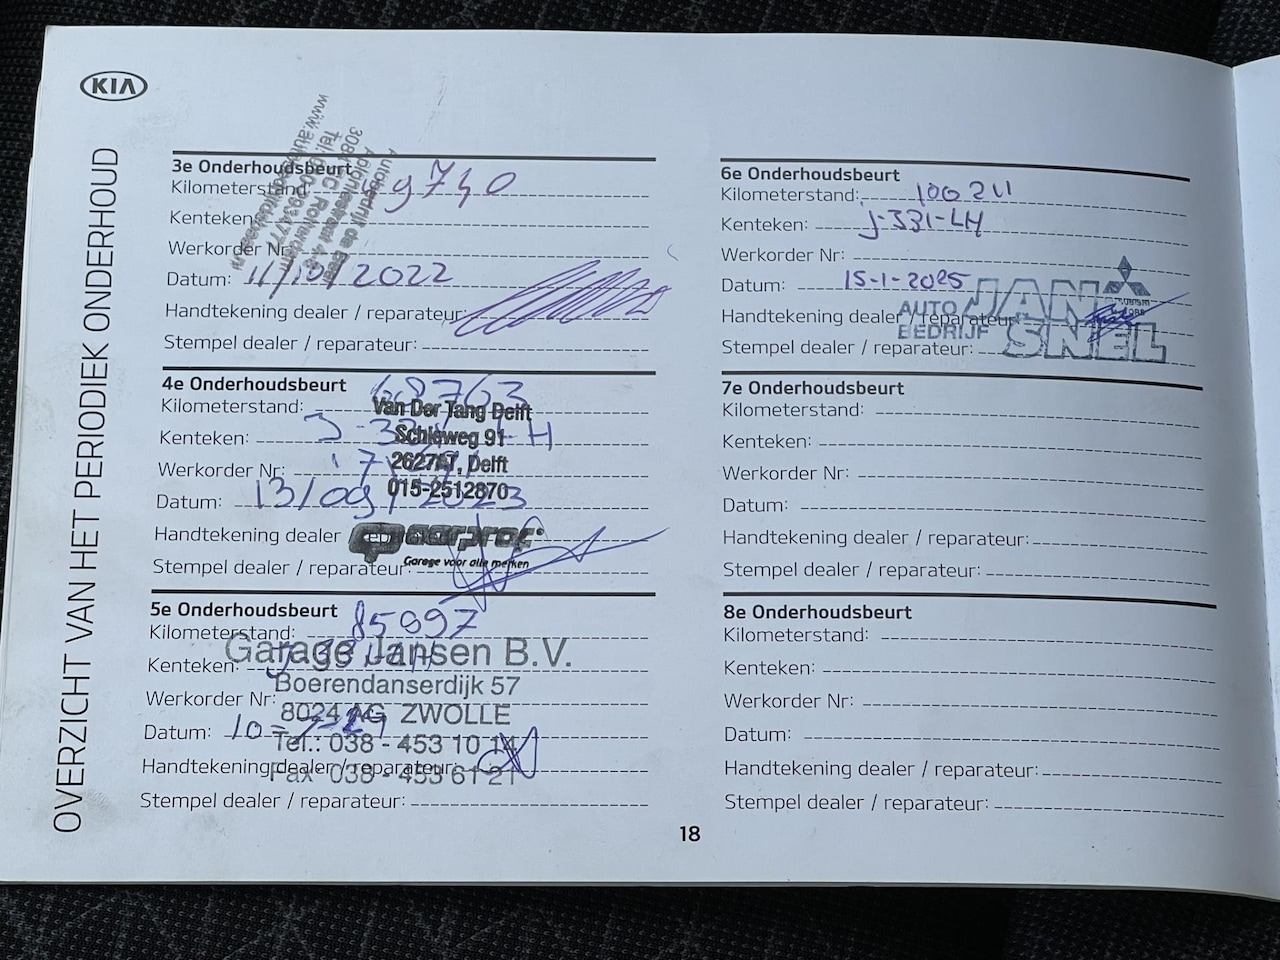 KIA
OVERZICHT VAN HET PERIODIEK ONDERHOUD
3e Onderhoudsbeurt
Kilometerstand: 49740
Kenteken:
Werkorder Nr:
Datum: 11/10/2022
Handtekening dealer / reparateur:
Stempel dealer / reparateur:
4e Onderhoudsbeurt
Kilometerstand: 68763
Kenteken: J-331-LH
Werkorder Nr:
Datum: 13/09/2023
Handtekening dealer / reparateur:
Stempel dealer / reparateur:
Van Der Tang Delft
Schieweg 91
2627AT, Delft
015-2512870
Garage voor alle merken
5e Onderhoudsbeurt
Kilometerstand: 85097
Kenteken:
Werkorder Nr:
Datum:
Handtekening dealer / reparateur:
Stempel dealer / reparateur:
Garage Jansen B.V.
Boerendanserdijk 57
8024 AG ZWOLLE
Tel.: 038 - 453 10 14
Fax: 038 - 453 61 21
6e Onderhoudsbeurt
Kilometerstand: 100211
Kenteken: J-331-LH
Werkorder Nr:
Datum: 15-1-2025
Handtekening dealer / reparateur:
Stempel dealer / reparateur:
AUTO JAN
BEDRIJF SNEL
7e Onderhoudsbeurt
Kilometerstand:
Kenteken:
Werkorder Nr:
Datum:
Handtekening dealer / reparateur:
Stempel dealer / reparateur:
8e Onderhoudsbeurt
Kilometerstand:
Kenteken:
Werkorder Nr:
Datum:
Handtekening dealer / reparateur:
Stempel dealer / reparateur:
18